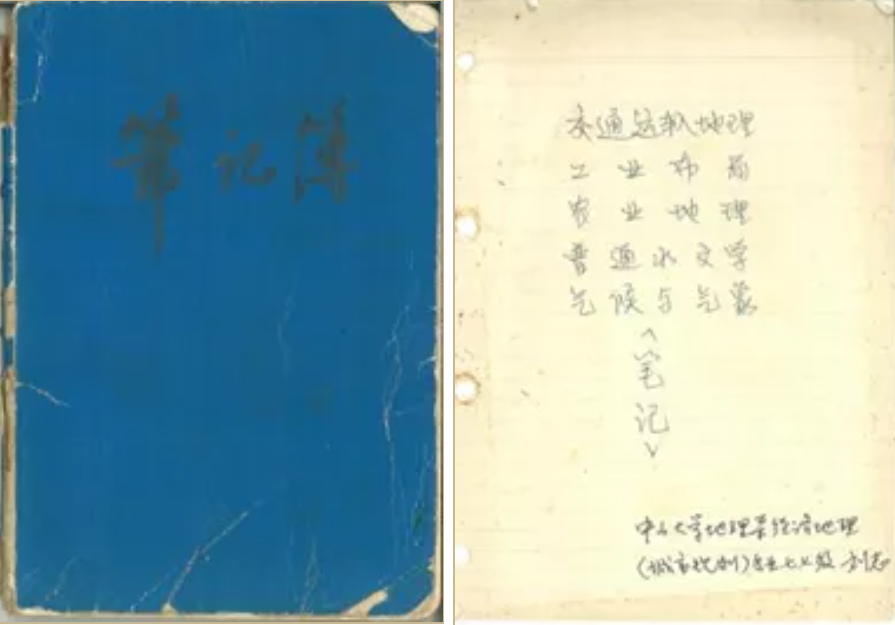 筆记簿
交通运轮地理
工业布局
农业地理
普通水文学
气候与气象
<笔记>
中山大学地理系经济地理
(城市规划)专业七七级 刘志